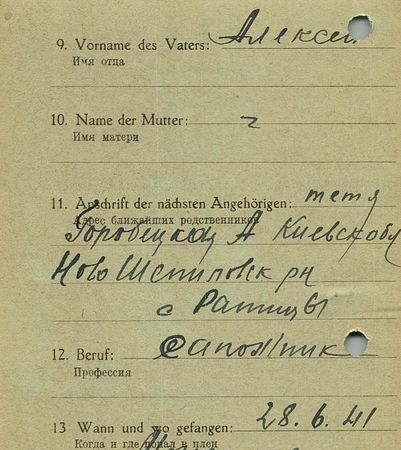 9. Vorname des Vaters: Алексей
Имя отца
10. Name der Mutter: 2
Имя матери
11. Anschrift der nächsten Angehörigen: тетя
Адрес ближайших родственников
Горобецкая А Киевск обл
Ново Шепиловск рн
с
12. Beruf: Сапожник
Профессия
13 Wann und wo gefangen: 28.6.41
Когда и где попал в плен